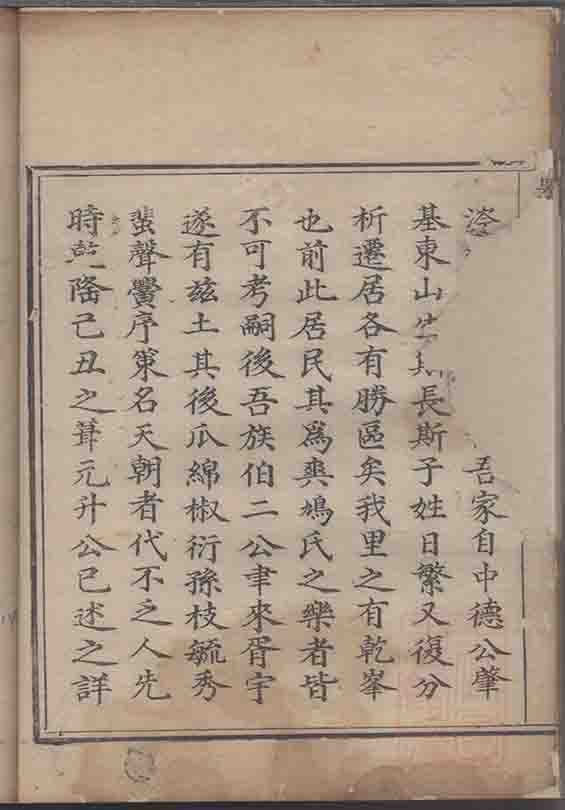 吾家自中德公肇
基東山生於長斯子姓日繁又復分
析遷居各有勝區矣我里之有乾峯
也前此居民其爲爽鳩氏之樂者皆
不可考嗣後吾族伯二公聿來胥宇
遂有茲土其後瓜綿椒衍孫枝毓秀
蜚聲黌序策名天朝者代不乏人先
時乾隆己丑之葺元升公已述之詳